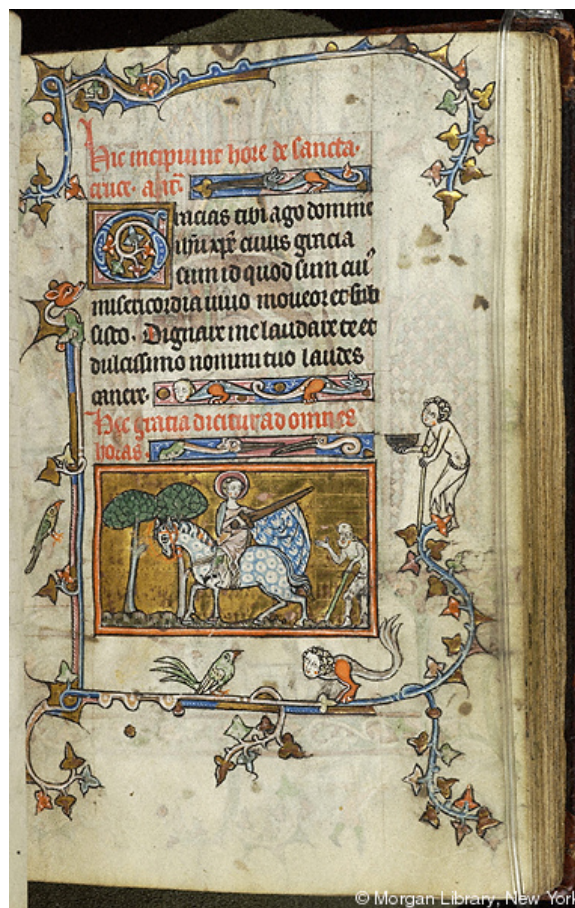 Hic incipiunt hore de sancta
cruce. añ.
Gracias tibi ago domine
ihu xpe cuius gracia
sum id quod sum cui'
misericordia uiuo moueor et sub
sisto. Dignare me laudare te et
dulcissimo nomini tuo laudes
canere.
Hec gracia dicitur ad omnes
horas.
© Morgan Library, New York